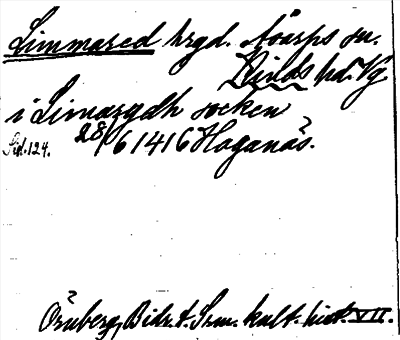 Limmared hrgd. Åsarps sn.
Kinds hd. Vg.
i Limarydh socken
Sid. 124. 28/6 1416 Höganäs.
Örnberg, Bidr. t. Srm. kult. hist. VII.